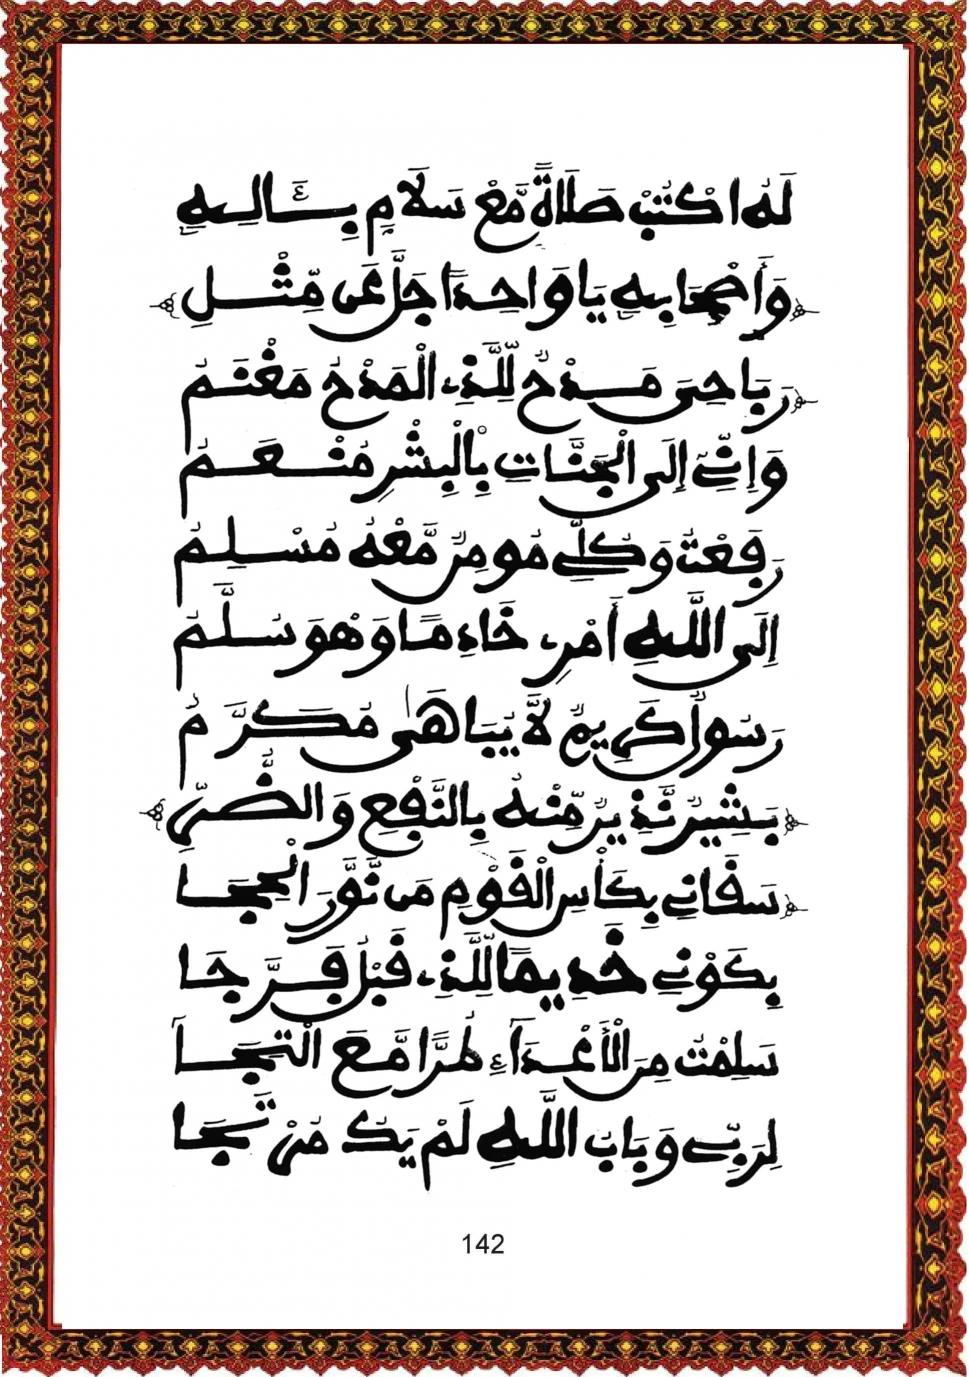 لَهُ اكْتُبْ صَلَاةً مَّعْ سَلَامٍ بِـَٔالِهِ
وَأَصْحَابِهِ يَا وَاحِدًا جَلَّ عَن مِّثْلِ
رَبَاحِىَ مَدْحٌ لِّلَّذِے الْمَدْحُ مَغْنَمُ
وَإِنِّے إِلَى الْجَنَّاتِ بِالْبِشْرِ مُنْعَمُ
رَفَعْتُ وَكُلِّے مُومِنٌ مَّعْهُ مُسْلِمُ
إِلَى اللَّهِ أَمْرِے خَادِمًا وَهْوَ سُلَّمُ
رَسُولٌ كَرِيمٌ لَّا يُبَاهَىٰ مُكَرَّمُ
بَشِيرٌ نَّذِيرٌ مِّنْهُ بِالنَّفْعِ وَالضُّرِّ
سَقَانِے بِكَأْسِ الْقَوْمِ مَن نَّوَّرَ الْحِجَا
بِكَوْنِے خَدِيمًا لِّلَّذِے قَبْلُ فَرَّجَا
سَلِمْتُ مِنَ الْأَعْدَآءِ طُرًّا مَّعَ الْتِجَآ
لِرَبِّے وَبَابُ اللَّهِ لَمْ يَكُ مُرْتَجَا
142